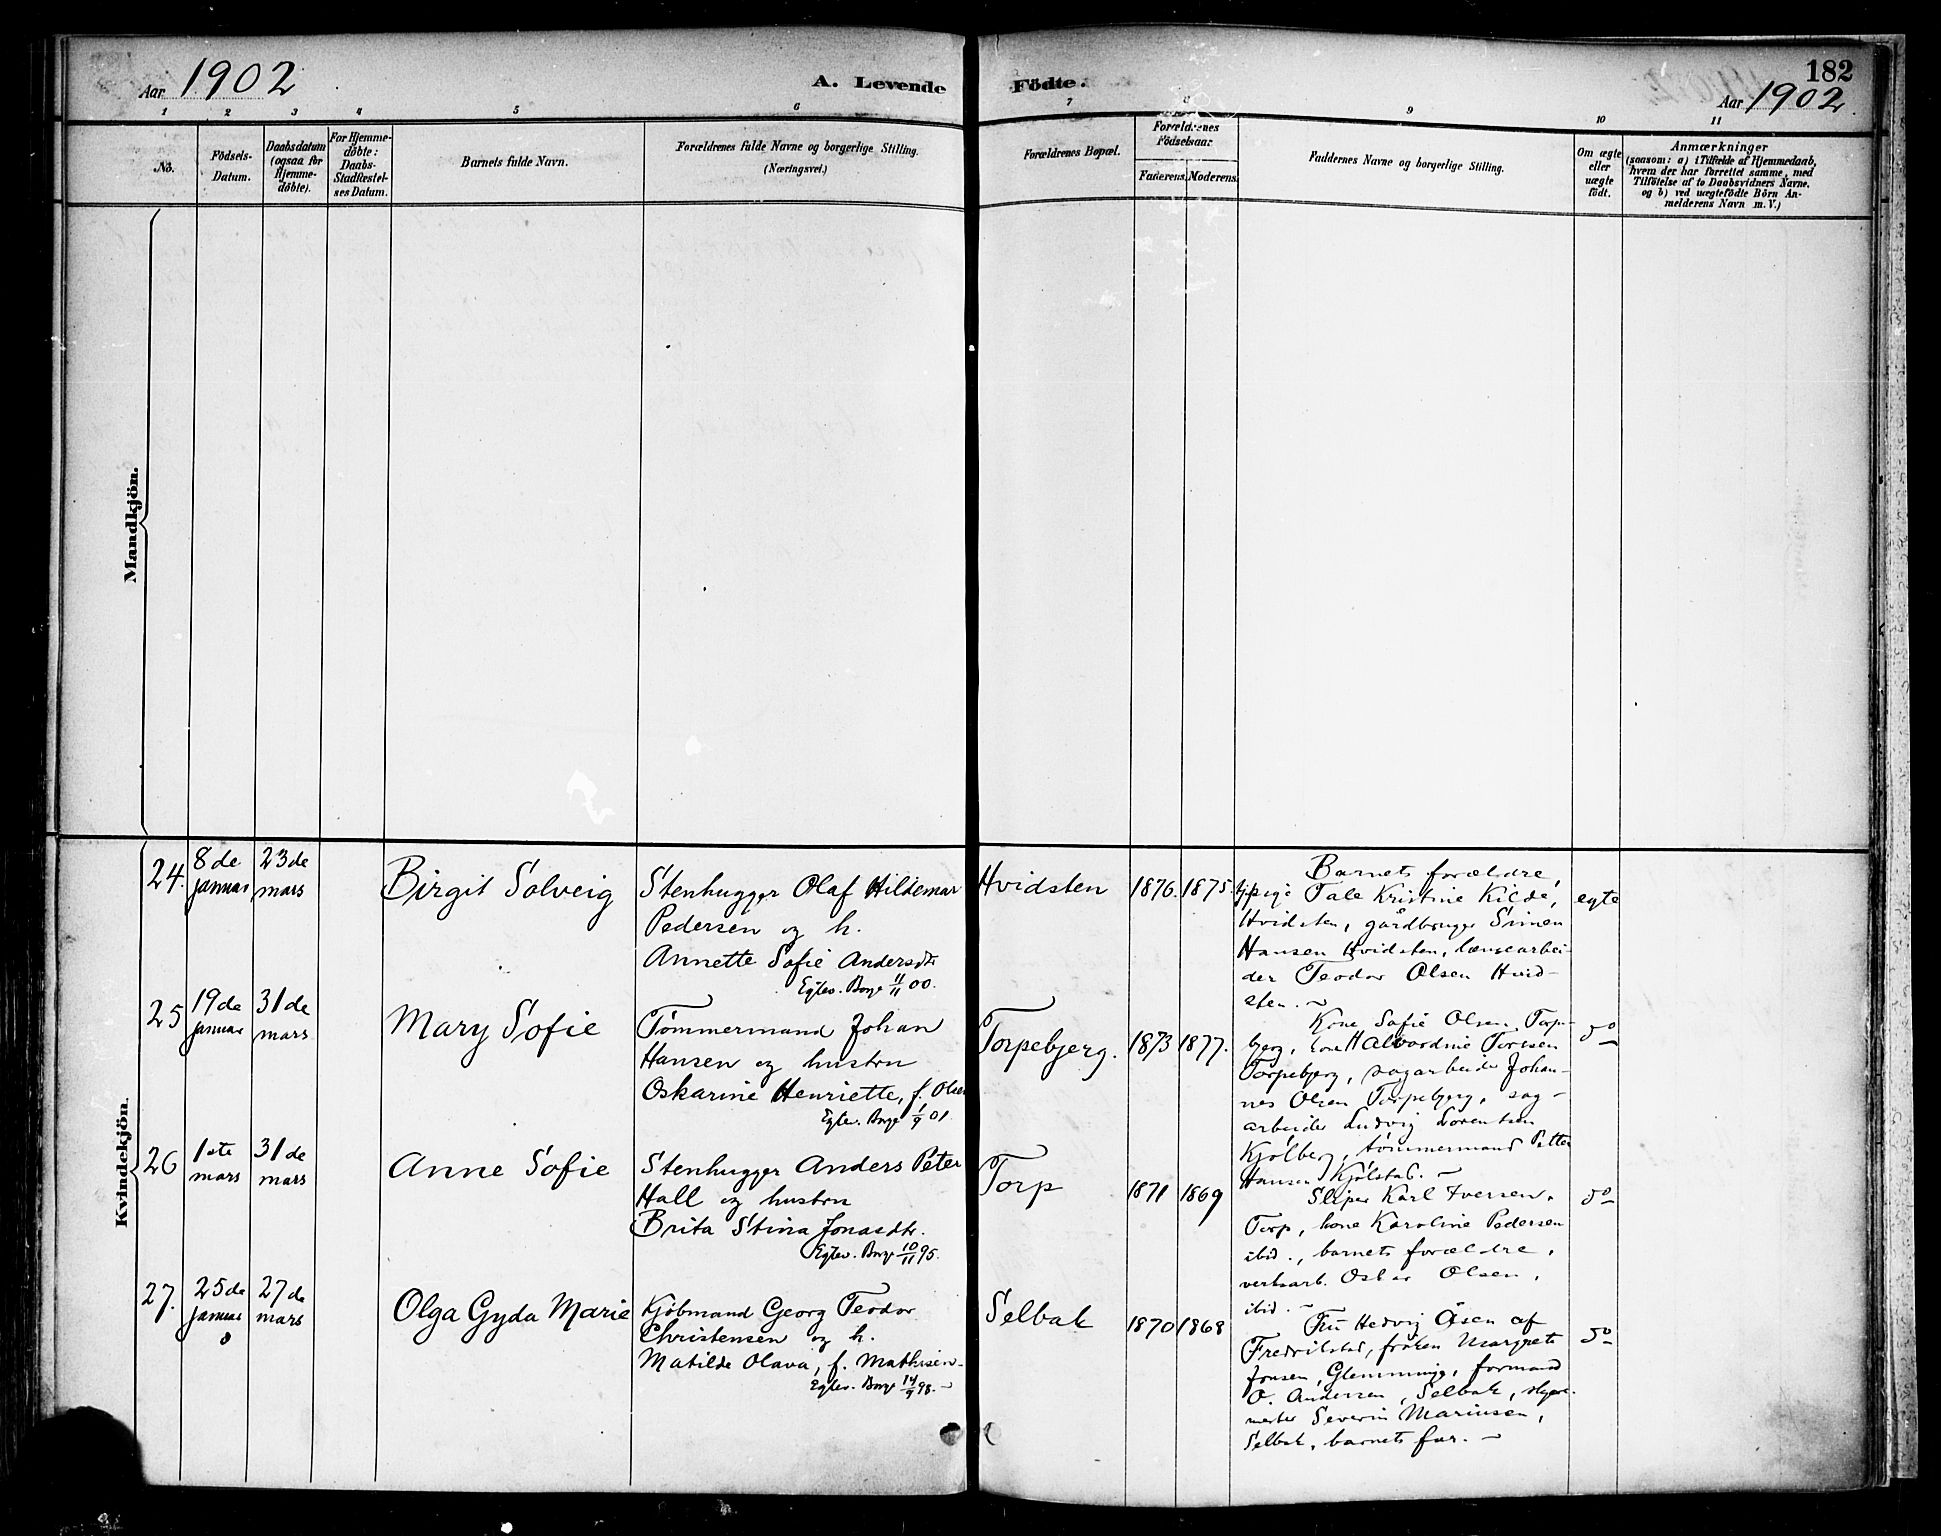 Aar 1902
A. Levende
Födte.
182
Aar 1902
1 2 3 4 5 6 7 8 9 10 11
No.
Födsels-
Datum.
Daabsdatum
(ogsaa for
Hjemme-
döbte).
For Hjemme-
döbte:
Daabs-
Stadfestel-
ses Datum.
Barnets fulde Navn.
Forældrenes fulde Navne og borgerlige Stilling.
(Næringsvei.)
Forældrenes Bopæl.
Forældrenes
Födselsaar.
Faderens. Moderens.
Faddernes Navne og borgerlige Stilling.
Om ægte
eller
uægte
födt.
Anmærkninger
(saasom: a) i Tilfælde af Hjemmedaab,
hvem der har forrettet samme, med
Tilföielse af to Daabsvidners Navne.
og b) ved uægtefödte Börn An-
melderens Navn m. V.)
Mandkjön.
Kvindekjön.
24.
8de
januar
23de
mars
Birgit Solveig
Stenhugger Olaf Hildemar
Pedersen og h.
Annette Sofie Andersdtr
Egtev. Borge 11/11 00.
Hvidsten
1876. 1875.
Barnets forældre,
pige Tale Kristine Kilde,
Hvidsten, gårdbruger Simen
Hansen Hvidsten, lænsearbei-
der Teodor Olsen Hvid-
sten. ~
egte
25
19de
januar
31de
mars
Mary Sofie
Tømmermand Johan
Hansen og hustru
Oskarine Henriette, f. Olsen
Egtev. Borge 1/9 01.
Torpebjerg.
1873 1877.
Kone Sofie Olsen Torpe-
bjerg, kone Halvordine Torssen
Torpebjerg, sagarbeider Johan-
nes Olsen Torpebjerg, sag-
arbeider Ludvig Lorentsen
Kjølberg, tømmermand Petter
Hansen Kjølstad. ~
do
26
1ste
mars
31de
mars
Anne Sofie
Stenhugger Anders Peter
Hall og hustru
Brita Stina Jonasdtr.
Egtev. Borge 10/11 95.
Torp
1871 1869
Sliper Karl Iversen,
Torp, kone Karoline Pedersen
ibid., barnets forældre,
verksarb. Oskar Olsen,
ibid. ~
do
27.
25de
januar
27de
mars
Olga Gyda Marie
Kjøbmand Georg Teodor
Christensen og h.
Matilde Olava, f. Mathisen
Egtev. Borge 14/9 98. ~
Selbak
1870 1868
Fru Hedvig Olsen af
Fredrikstad, frøken Margrete
Jonsen, Glemminge, formand
O. Andersen, Selbak,
mester Severin Marinsen,
Selbak, barnets far. ~
do